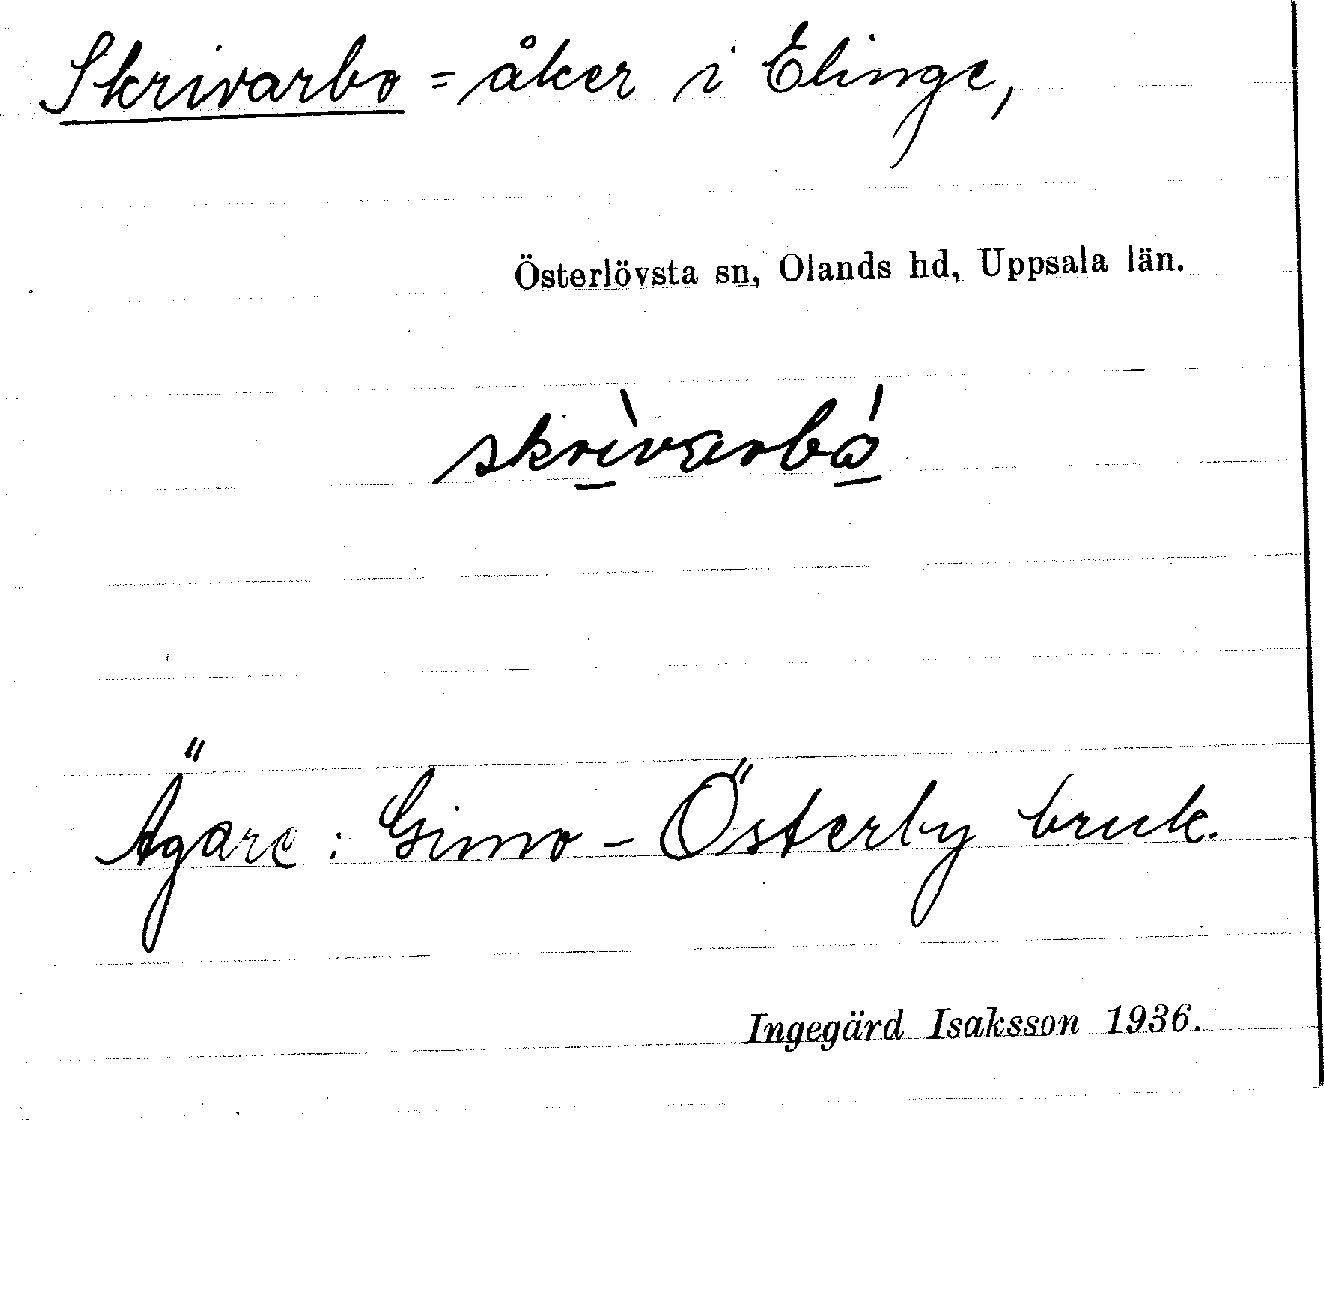 Skrivarbo = åker i Elinge,
Österlövsta sn, Olands hd, Uppsala län.
skrì̱varbɷ̱́
Ägare : Gimo - Österby bruk.
Ingegärd Isaksson 1936.